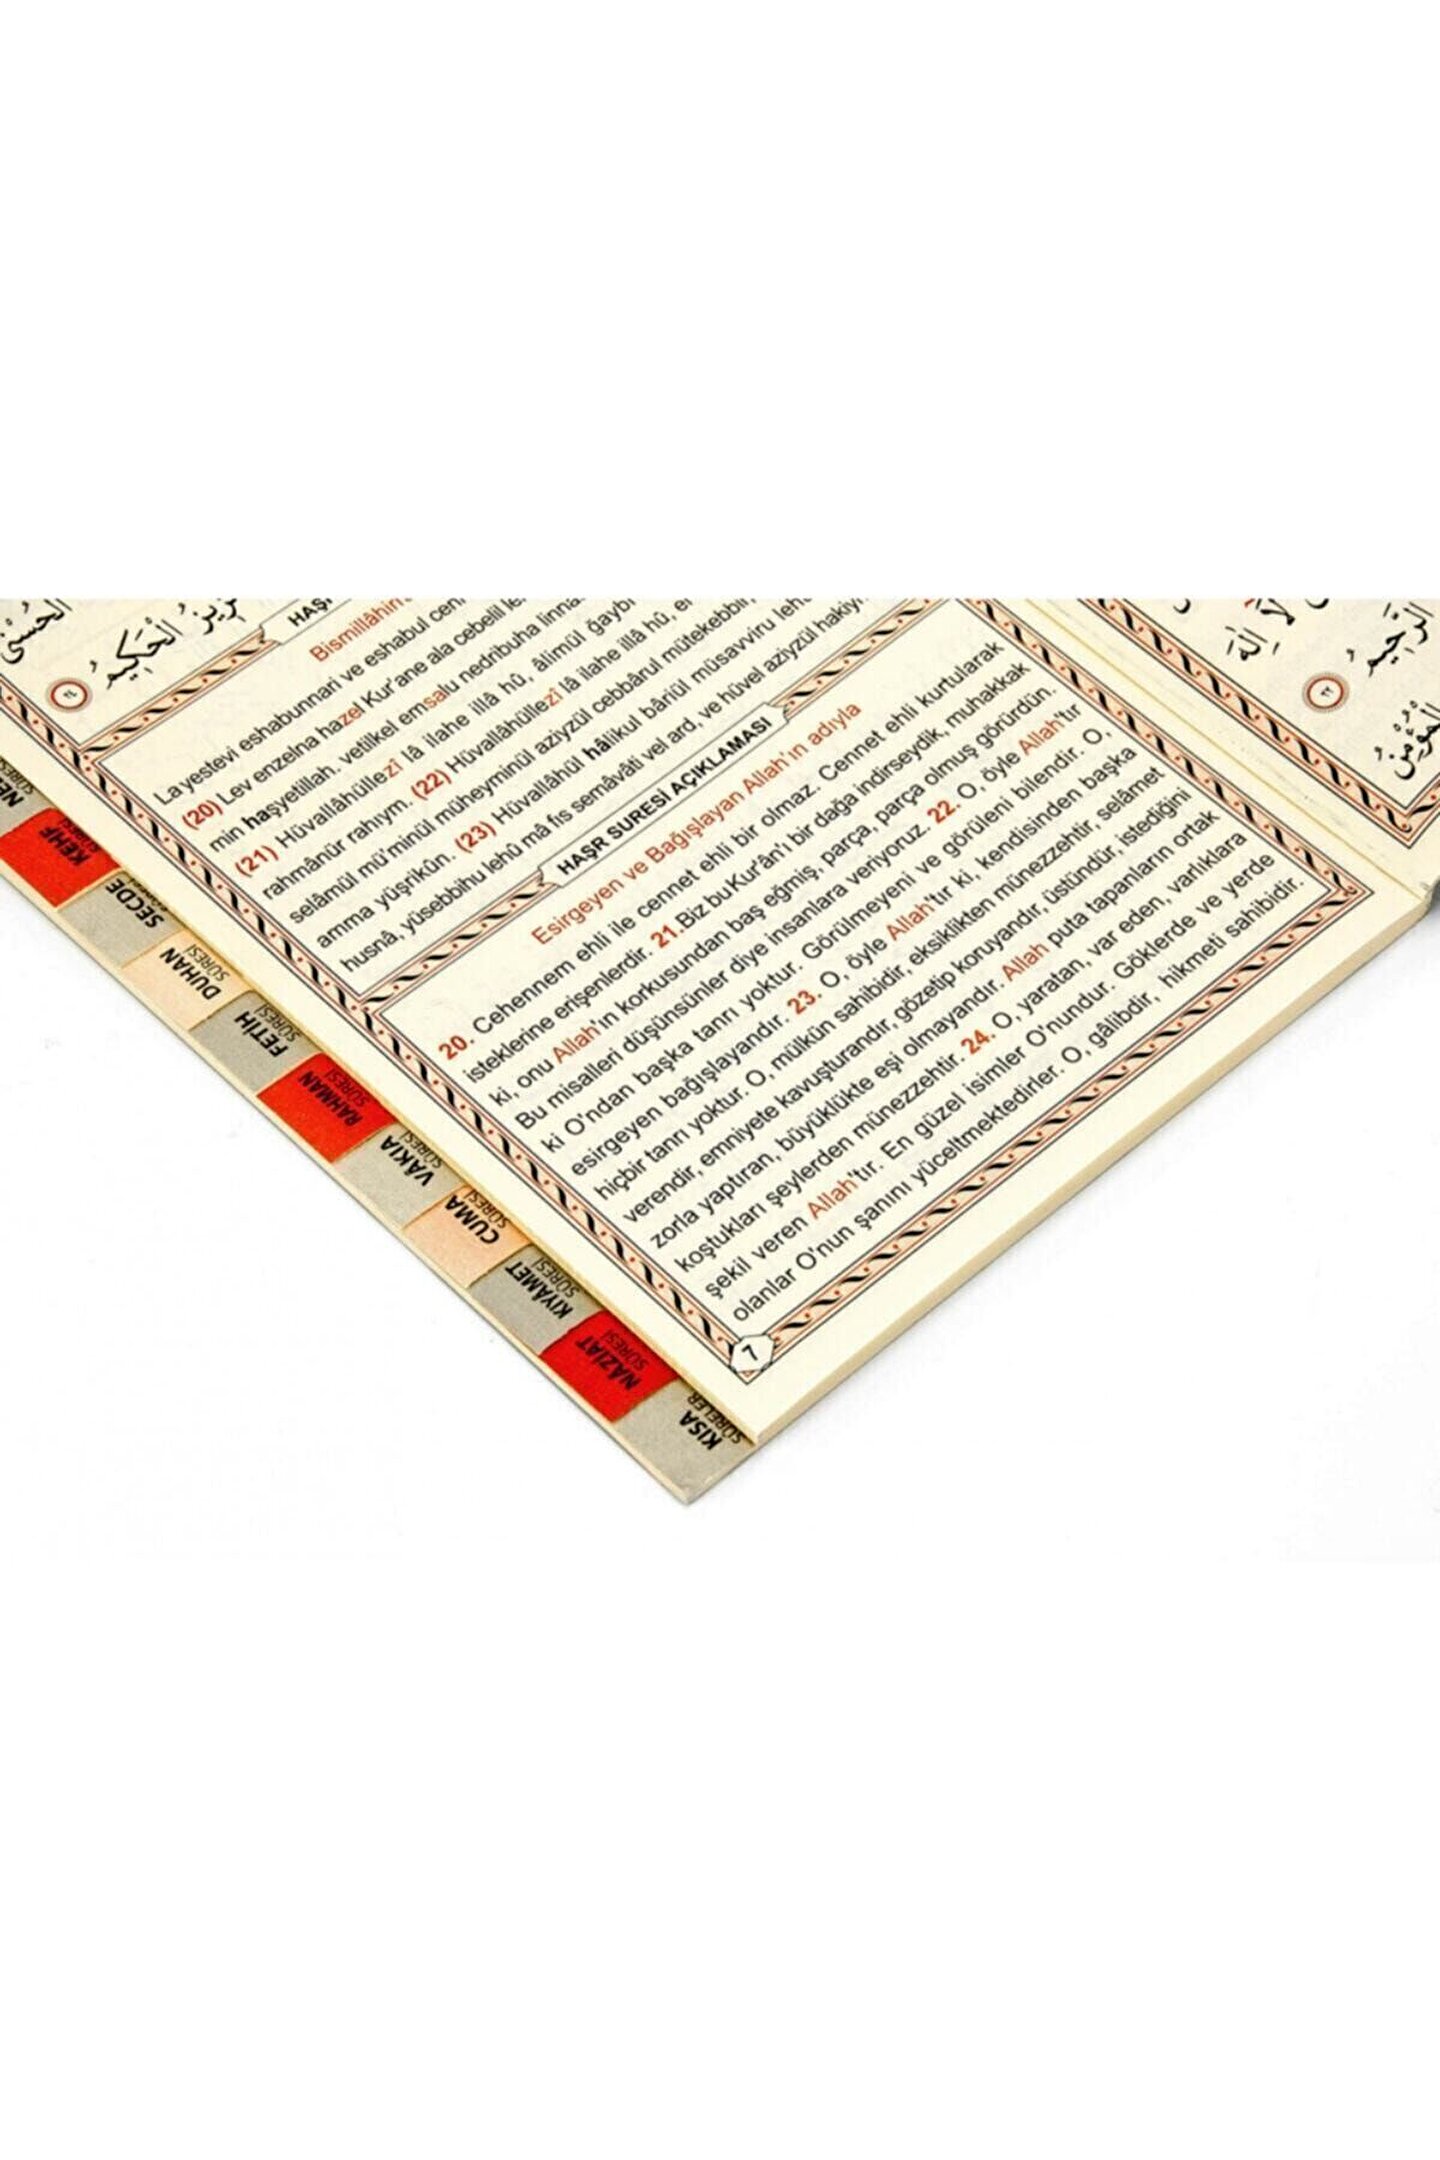 الْحُسْنٰى
الْحَكِيمُ
٢٤
Bismillâhir
Layestevi eshabunnari ve eshabul cen
(20) Lev enzelna hazel Kur'ane ala cebelil le
min haşyetillah. vetilkel emsalu nedribuha linna
(21) Hüvallâhüllezî lâ ilahe illâ hû, âlimül ğaybi
rahmânür rahıym. (22) Hüvallâhüllezî lâ ilahe illâ hû, el
selâmül mü'minül müheyminül aziyzül cebbârul mütekebbir,
amma yüşrikûn. (23) Hüvallâhül hâlikul bâriül müsavviru lehü
husnâ, yüsebbihu lehû mâ fıs semâvâti vel ard, ve hüvel aziyzül hakiym
HAŞR SURESİ AÇIKLAMASI
Esirgeyen ve Bağışlayan Allah'ın adıyla
20. Cehennem ehli ile cennet ehli bir olmaz. Cennet ehli kurtularak
isteklerine erişenlerdir. 21.Biz bu Kur'ân'ı bir dağa indirseydik, muhakkak
ki, onu Allah'ın korkusundan baş eğmiş, parça, parça olmuş görürdün.
Bu misalleri düşünsünler diye insanlara veriyoruz. 22. O, öyle Allah'tır
ki O'ndan başka tanrı yoktur. Görülmeyeni ve görüleni bilendir. O,
esirgeyen bağışlayandır. 23. O, öyle Allah'tır ki, kendisinden başka
hiçbir tanrı yoktur. O, mülkün sahibidir, eksiklikten münezzehtir, selâmet
verendir, emniyete kavuşturandır, gözetip koruyandır, üstündür, istediğini
zorla yaptıran, büyüklükte eşi olmayandır. Allah puta tapanların ortak
koştukları şeylerden münezzehtir. 24. O, yaratan, var eden, varlıklara
şekil veren Allah'tır. En güzel isimler O'nundur. Göklerde ve yerde
olanlar O'nun şanını yüceltmektedirler. O, gâlibdir, hikmeti sahibidir.
7
KEHF
SECDE
DUHAN
SÛRESİ
FETİH
SÛRESİ
RAHMAN
SÛRESİ
VÂKIA
SÛRESİ
CUMA
SÛRESİ
KIYÂMET
SÛRESİ
NÂZİAT
SÛRESİ
KISA
SÛRELER
لَا اِلٰهَ
الرَّحِيمُ
٢٢
الْمُؤْمِنُ